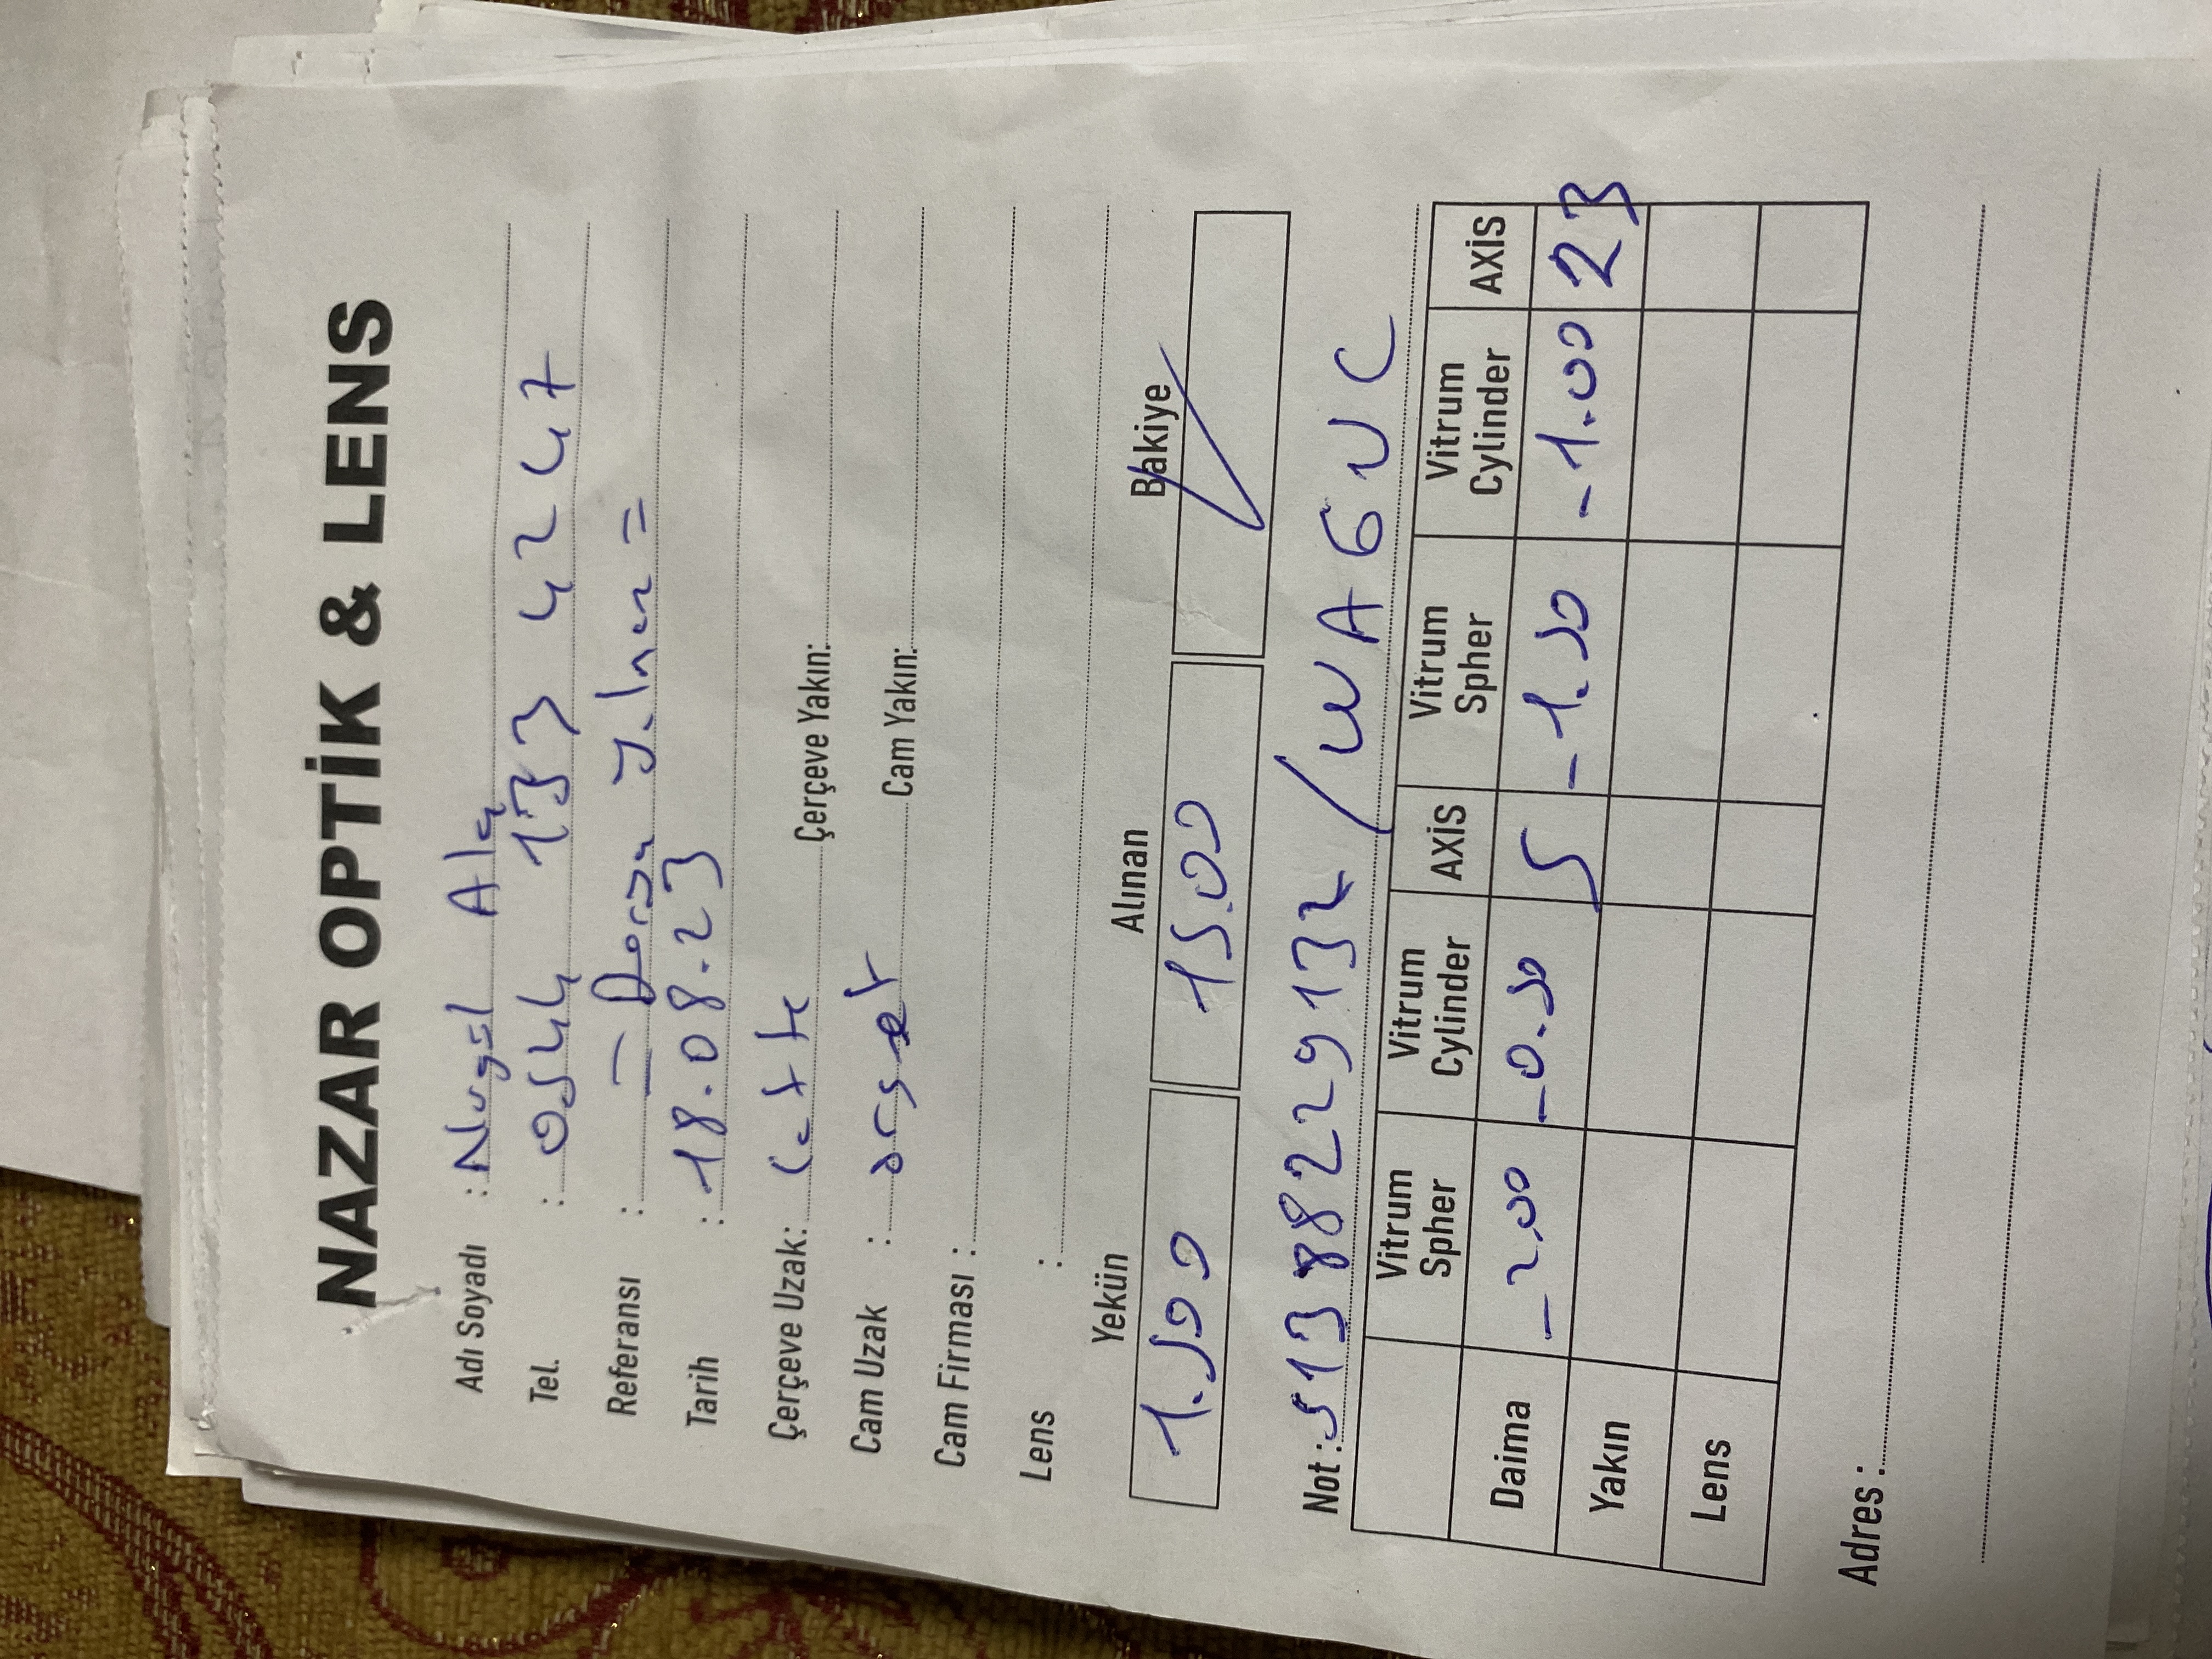 NAZAR OPTİK & LENS
Adı Soyadı : Nurgül Ala
Tel. : 0544 133 4247
Referansı : = Derya Yılmaz =
Tarih : 18.08.23
Çerçeve Uzak: Çerçeve Yakın:
Cam Uzak : Cam Yakın:
Cam Firması :
Lens :
Yekün Alınan Bakiye
1.500 15.00
Not : 51388229132 / WA6UC
Vitrum Spher Vitrum Cylinder AXİS Vitrum Spher Vitrum Cylinder AXİS
Daima -2.00 -0.50 5 -1.50 -1.00 23
Yakın
Lens
Adres :